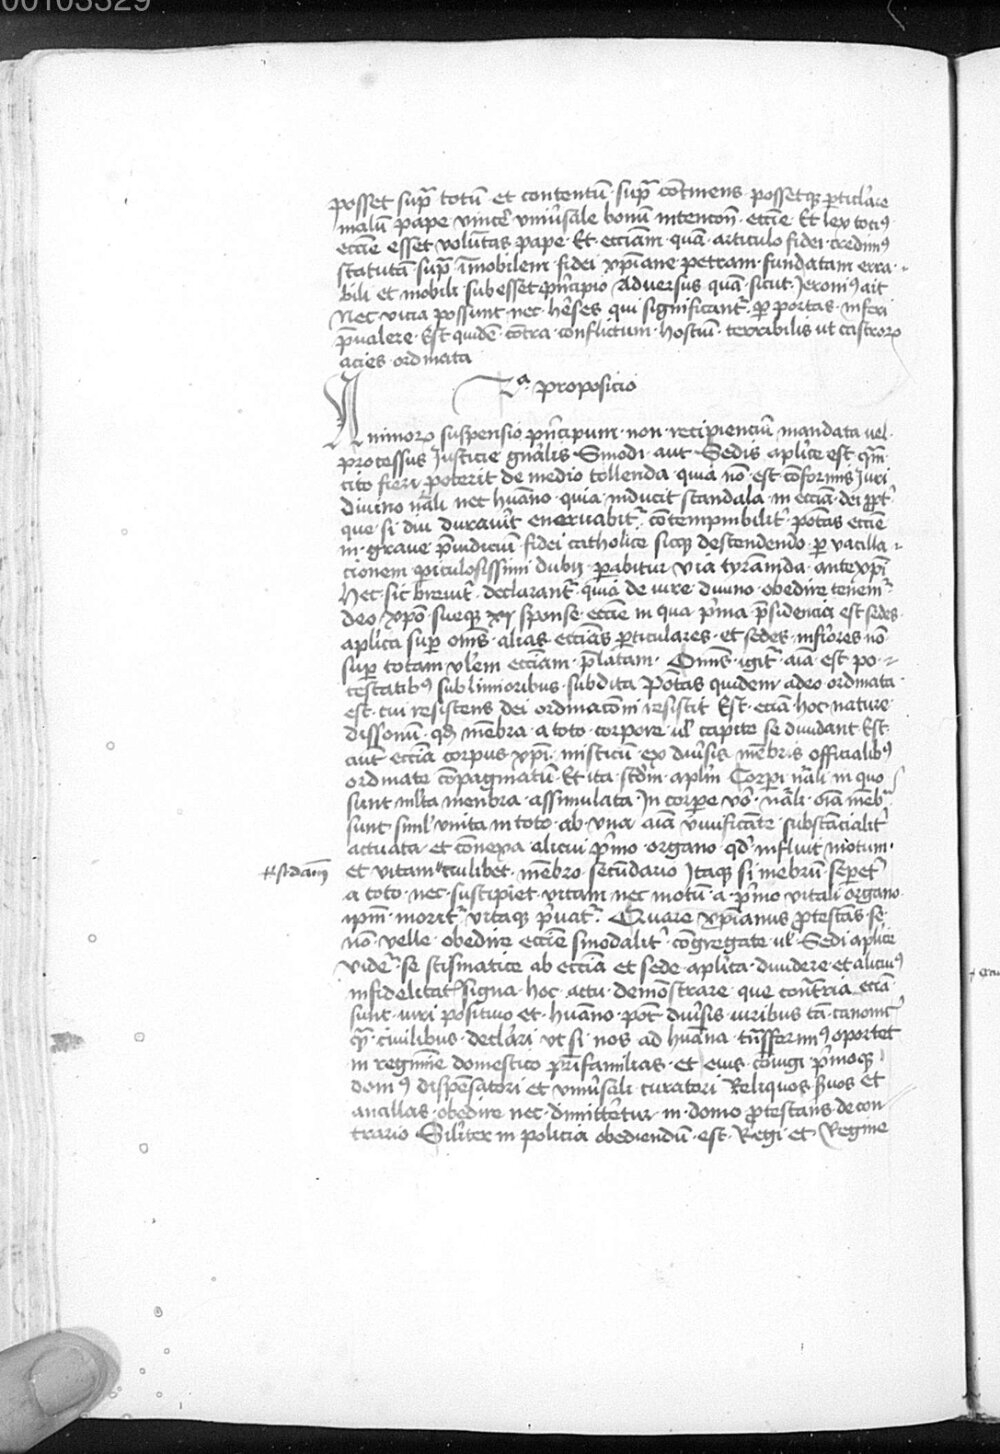 00103329
posset supra totū et contentū supra cōtinens possetque particlare
malū pape vincere vniūsale bonū intencōn eccīe Et lex tocius
eccīe esset volūtas pape Et ecciam quā articulo fidei credimus
statutā supra īmobilem fidei xpīane petram fundatam erra-
bili et mobili subesset principio Adversus quā sicut Jeronimus ait
Nec vicia possunt nec hereses qui significantur per portas inferi
prevalere Est quidē cōtra conflictum hostiū terribilis ut castrorum
acies ordinata
proposicio
Animorum suspensio principum non recipienciū mandata vel
processus Justicie gnālis Sinodi aut Sedis aplīce est quam
cito fieri poterit de medio tollenda quia nō est cōformis Juri
divino nāli nec hūano quia inducit scandala in ecciā dei propter
que si diu duraverit enervabitur cōtempnibiliter potestas eccīe
in grave preiudiciū fidei catholice sicque descendendo per vacilla-
cionem periculosissimi dubij parabitur via tyrannida antexpī
Hec sic breviter declarantur quia de iure divino obedire tenemur
deo xpō sueque sponse eccīe in qua prima presidencia est sedes
aplīca super omnes alias ecciās particulares et sedes inferiores nō
super totam vlem ecciam prelatam Omnis igitur aīa est po-
testatibus sublimioribus subdita Potestas quidem a deo ordinata
est cui resistens dei ordinacioni resistit Est eciā hoc nature
dissonū quod mēbra a toto corpore vel capite se dividant Est
autem ecciā corpus xpī misticū ex diversis mēbris officialibus
ordinate cōpaginatū Et ita secundum aplīm Corpori nāli in quo
sunt multa menbra assimulata In corpore vero nāli oīa mēbra
sunt simul vnita in toto ab vna aīa vivificāte substācialiter
actuata et cōnexa alicui primo organo quod influit motum
et vitam cuilibet mēbro secūdario Itaque si mēbrū separetur
a toto nec suscipiet vitam nec motū a primo vitali organo
ipm moritur vitaque privatur Quare xpīanus protestans se
nō velle obedire eccīe sinodaliter cōgregate vel Sedi aplīce
videtur se scismatice ab ecciā et sede aplīca dividere et alicuius
infidelitatis signa hoc actu demōstrare que contraria eciā
sunt iuri positivo et hūano potest diversis iuribus tā canonicis
quam civilibus declarari vt si nos ad hūana transferimus oportet
in regimine domestico patrifamilias et eius coniugi primoque
domus dispēsatori et vniversali curatori Reliquos servos et
ancillas obedire nec dimitteretur in domo protestans de con
trario Similiter in policia obediendū est Regi et Regine